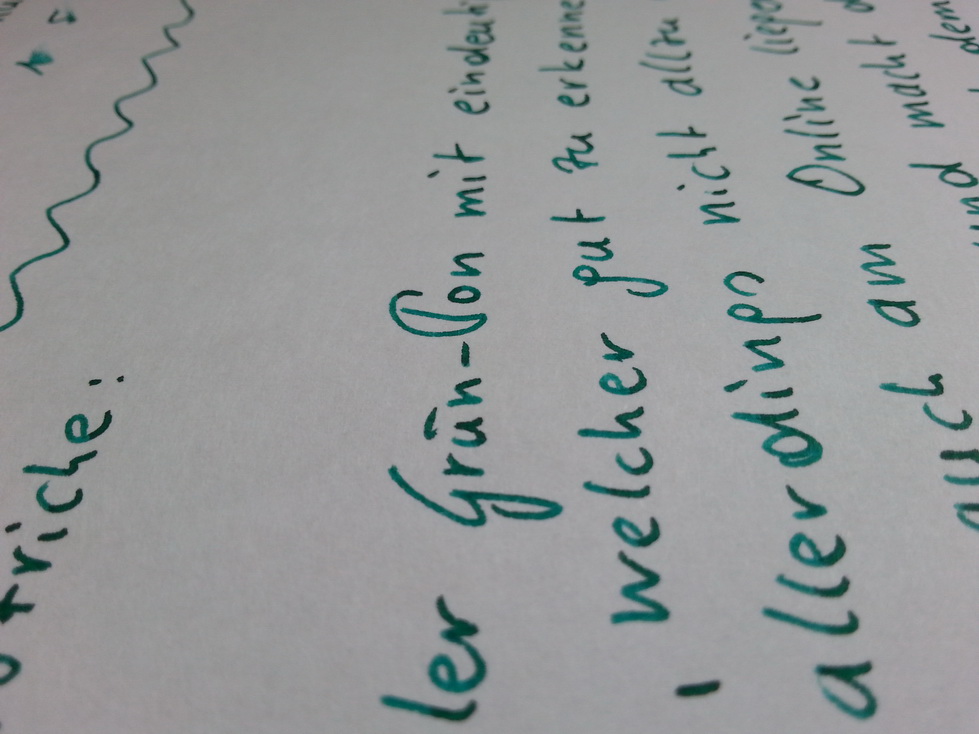 riche:
ler Grün-Ton mit eindeuti
welcher gut zu erkenne
allerdings nicht allzu
am Online liegt
und macht